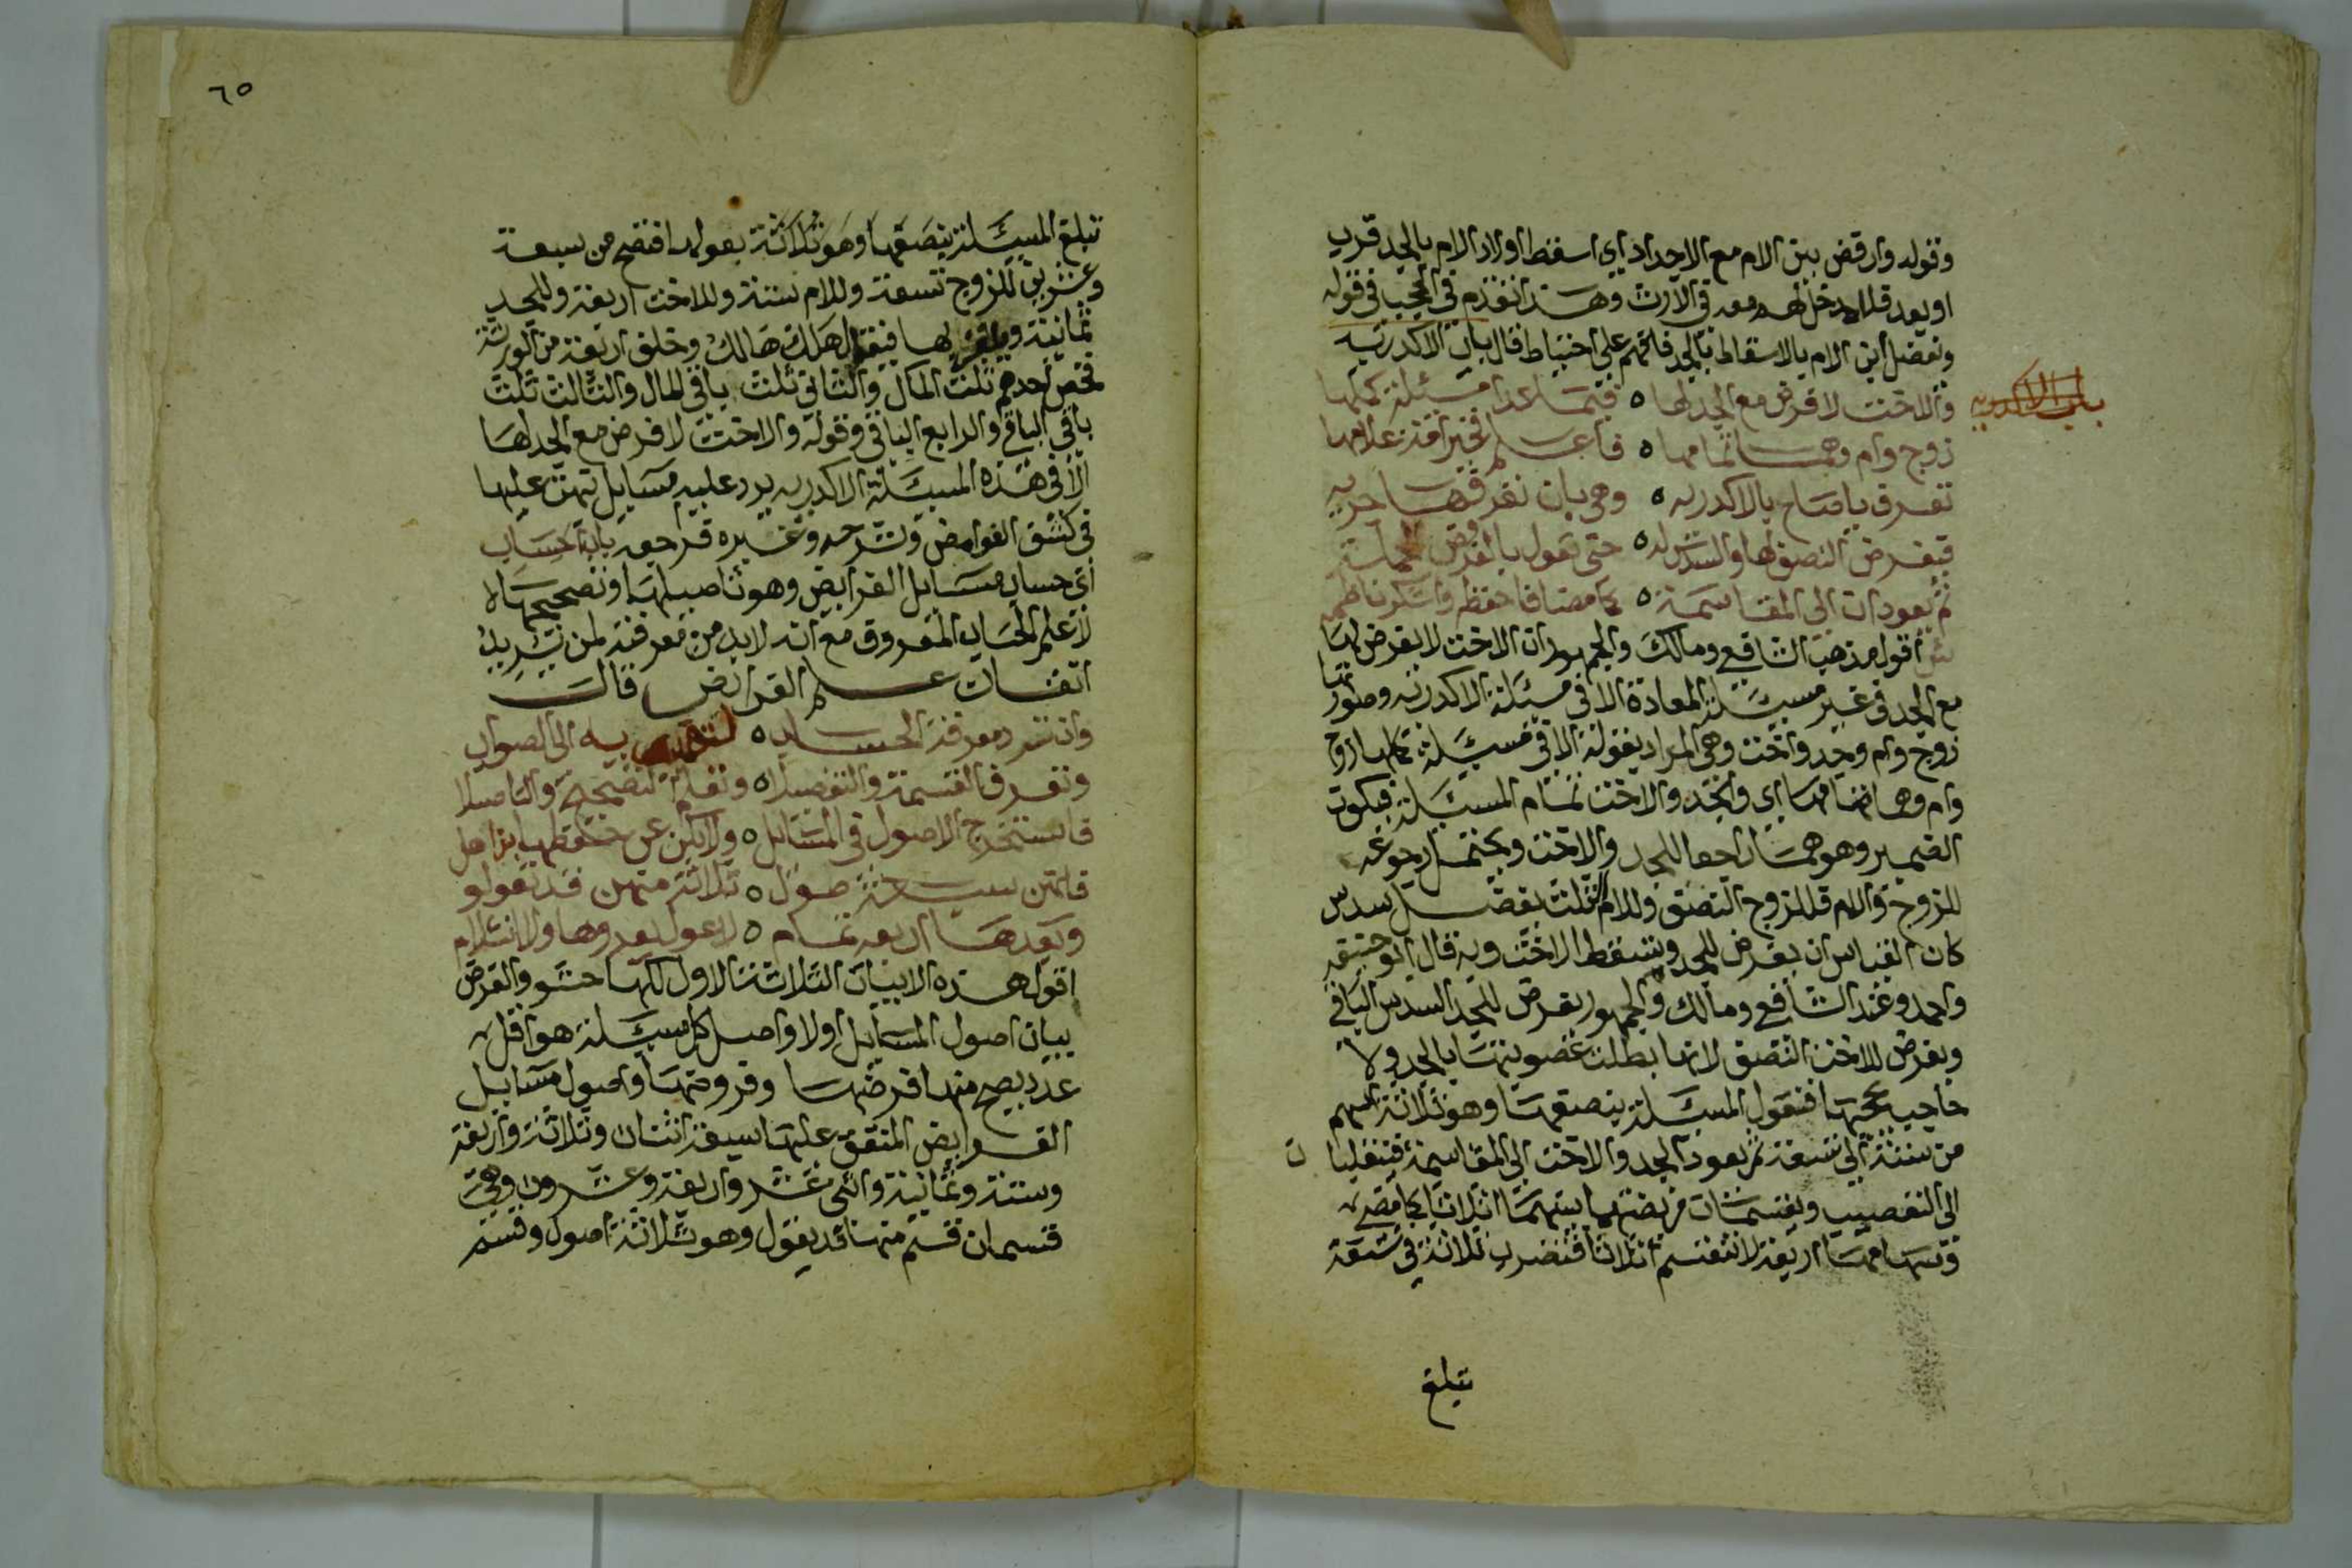 وقوله وارفض بني الام مع الاجداد اي اسقط اولاد الام بالجد قرب
او بعد فلا مدخل لهم معه في الارث وهذا تقدم في الحجب في قوله
وتفضل ابن الام بالاسقاط بالجد فافهم على احتياط قال باب الاكدريه
باب الاكدريه
والاخت لا فرض مع الجد لها ه فيما عدا مسئلة كملها
زوج وام وهما تمامها ه فاعلم فخير امة علامها
تعرف يا صاح بالاكدريه ه وهي بان تعرفها حريه
فيفرض النصف لها والسدس له ه حتى تعول بالفروض المجملة
ثم يعودان الى المقاسمة ه كما مضى فاحفظه واشكر ناظمه
ش اقول مذهب الشافعي ومالك والجمهور ان الاخت لا يفرض لها
مع الجد في غير مسئلة المعادة الا في مسئلة الاكدريه وصورتها
زوج وام وجد واخت وهي المراد بقوله الا في مسئلة كملها زوج
وام وهما تمامها اي والجد والاخت تمام المسئلة فيكون
الضمير وهو هما راجعا للجد والاخت ويحتمل رجوعه
للزوج والام فللزوج النصف وللام الثلث يفضل سدس
كان القياس ان يفرض للجد وتسقط الاخت وبه قال ابو حنيفه
واحمد وعند الشافعي ومالك والجمهور يفرض للجد السدس الباقي
ويفرض للاخت النصف لانها بطلت عصوبتها بالجد ولا
حاجب يحجبها فتعول المسئلة بنصفها وهو ثلاثة اسهم
من ستة الى تسعة ثم يعود الجد والاخت الى المقاسمة فينقلبا ن
الى التعصيب ويقتسمان فريضتهما بينهما اثلاثا كما مضى
وسهامهما اربعة لا تنقسم اثلاثا فتضرب ثلاثة في تسعة
تبلغ
٦٥
تبلغ المسئلة بنصفها وهو ثلاثة بعولها فتصح من سبعة
وعشرين للزوج تسعة وللام ستة وللاخت اربعة وللجد
ثمانية ويلغز بها فيقال هلك هالك وخلف اربعة من الورثة
فخص احدهم ثلث المال والثاني ثلث باقي المال والثالث ثلث
باقي الباقي والرابع الباقي وقوله والاخت لا فرض مع الجد لها
الا في هذه المسئلة الاكدريه يرد عليه مسايل نبهت عليها
في كشف الغوامض وشرحه وغيره فراجعه باب الحساب
اي حساب مسايل الفرايض وهو تاصيلها وتصحيحها لا
لا علم الحساب المعروف مع انه لا بد من معرفته لمن يريد
اتقان علم الفرايض قال
وان ترد معرفة الحساب ه لتهتدي به الى الصواب
وتعرف القسمة والتفصيلا ه وتعلم التصحيح والتاصيلا
فاستخرج الاصول في المسايل ه ولا تكن عن حفظها بذاهل
فانهن سبعة اصول ه ثلاثة منهن قد تعول
وبعدها اربعة تمام ه لا عول يعروها ولا انثلام
اقول هذه الابيات الثلاثة الاول كلها حشو والغرض
بيان اصول المسايل اولا واصل كل مسئلة هو اقل
عدد يصح منه فرضها وفروضها واصول مسايل
الفرايض المتفق عليها سبعة اثنان وثلاثة واربعة
وستة وثمانية واثنى عشر واربعة وعشرون وهي
قسمان قسم منها قد يعول وهو ثلاثة اصول وقسم